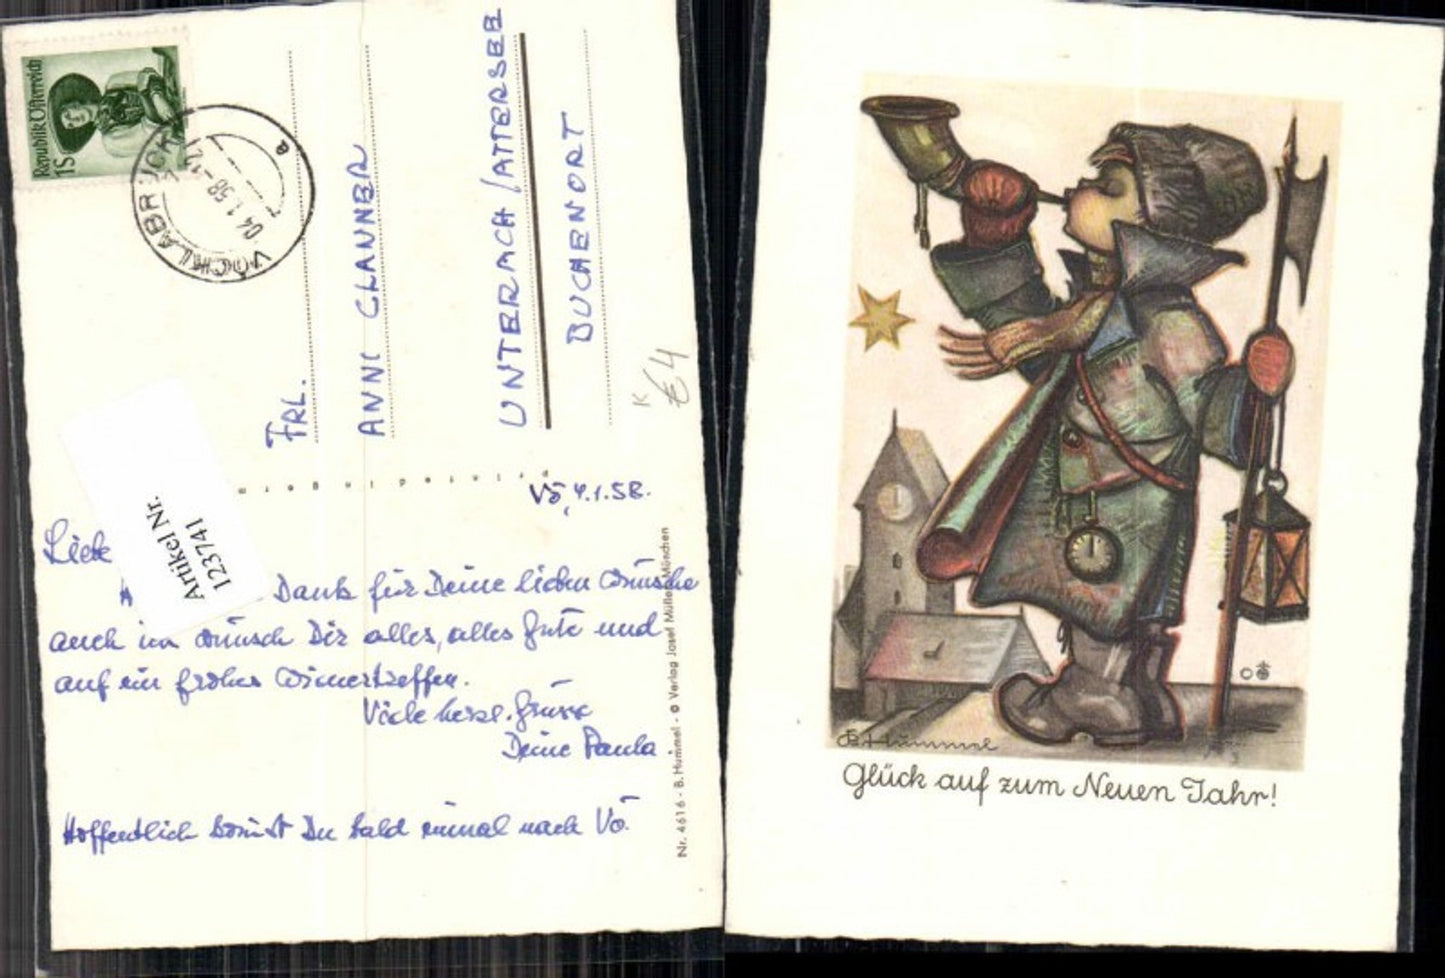 Republik Österreich
1 S
VÖCKLABRUCK
04.1.58-12
a
FRL.
ANNI CLANNER
UNTERACH/ATTERSEE
BUCHENORT
K
€4
printed in germ
Vö, 4.1.58.
Artikel Nr.
123741
Liebe
Dank für Deine lieben Wünsche
auch ich wünsch Dir alles, alles Gute und
auf ein frohes
Viele herzl. Grüsse
Deine Paula.
Hoffentlich kommst Du bald einmal nach Vö.
Nr. 4616 - B. Hummel - © Verlag Josef Müller München
B Hummel
Glück auf zum Neuen Jahr!